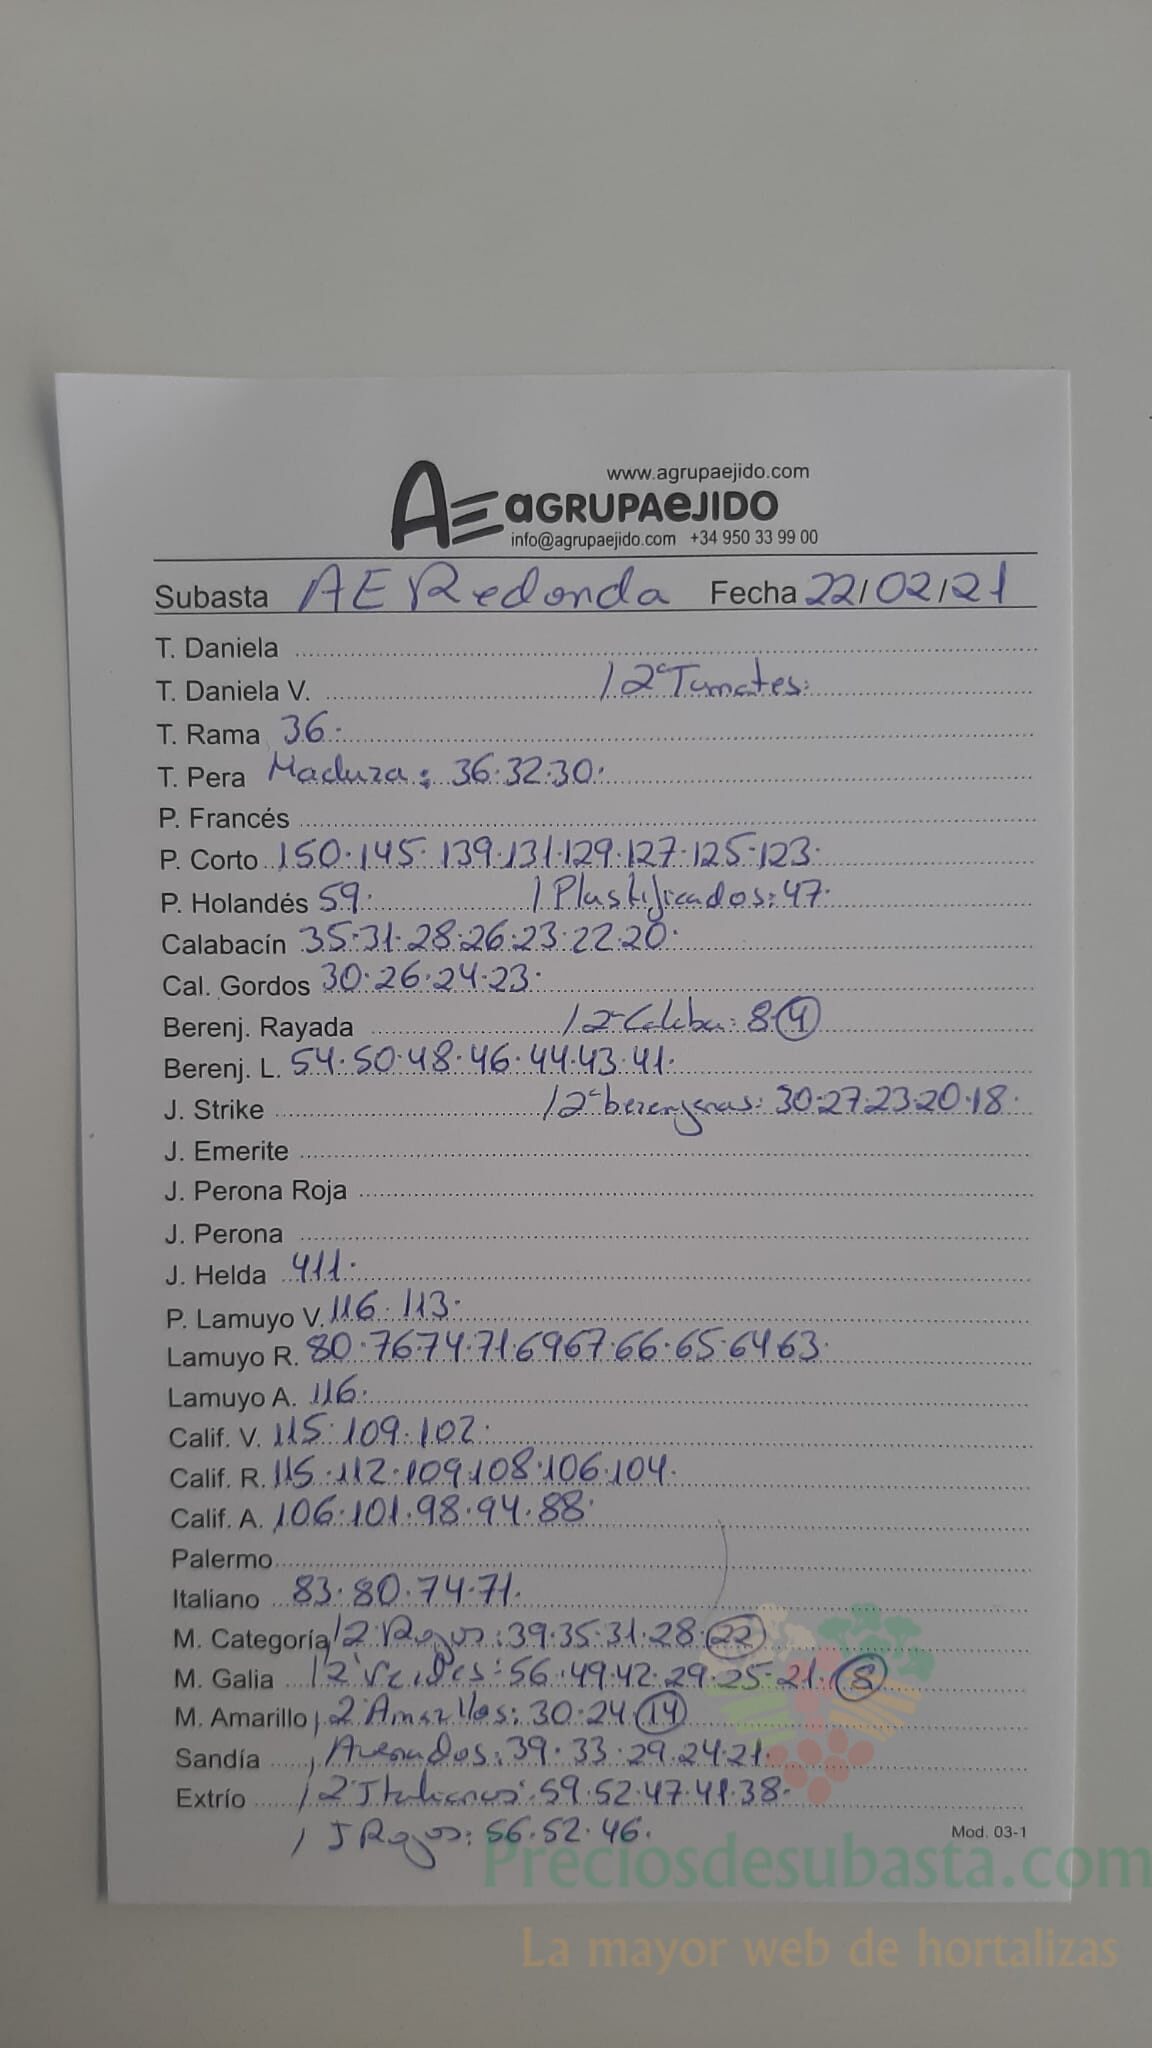 www.agrupaejido.com
AE aGRUPAeJIDO
info@agrupaejido.com +34 950 33 99 00
Subasta AE Redonda Fecha 22/02/21
T. Daniela
T. Daniela V. / 2ª Tumates:
T. Rama 36.
T. Pera Madura: 36.32.30.
P. Francés
P. Corto 150.145.139.131.129.127.125.123.
P. Holandés 59. / Plastificados: 47.
Calabacín 35.31.28.26.23.22.20.
Cal. Gordos 30.26.24.23.
Berenj. Rayada / 2ª Calaba: 8.4
Berenj. L. 54.50.48.46.44.43.41.
J. Strike / 2ª berenjenas: 30.27.23.20.18.
J. Emerite
J. Perona Roja
J. Perona
J. Helda 411.
P. Lamuyo V. 116.113.
Lamuyo R. 80.76.74.71.69.67.66.65.64.63.
Lamuyo A. 116.
Calif. V. 115.109.102.
Calif. R. 115.112.109.108.106.104.
Calif. A. 106.101.98.94.88.
Palermo
Italiano 83.80.74.71.
M. Categoría / 2 Rojos: 39.35.31.28.22
M. Galia / 2 Verdes: 56.49.42.29.25.21.8
M. Amarillo / 2 Amarillos: 30.24.14
Sandía / Asados: 39.33.29.24.21.
Extrío / 2 Italianos: 59.52.47.41.38.
/ J Rojos: 56.52.46.
Mod. 03-1
Preciosdesubasta.com
La mayor web de hortalizas